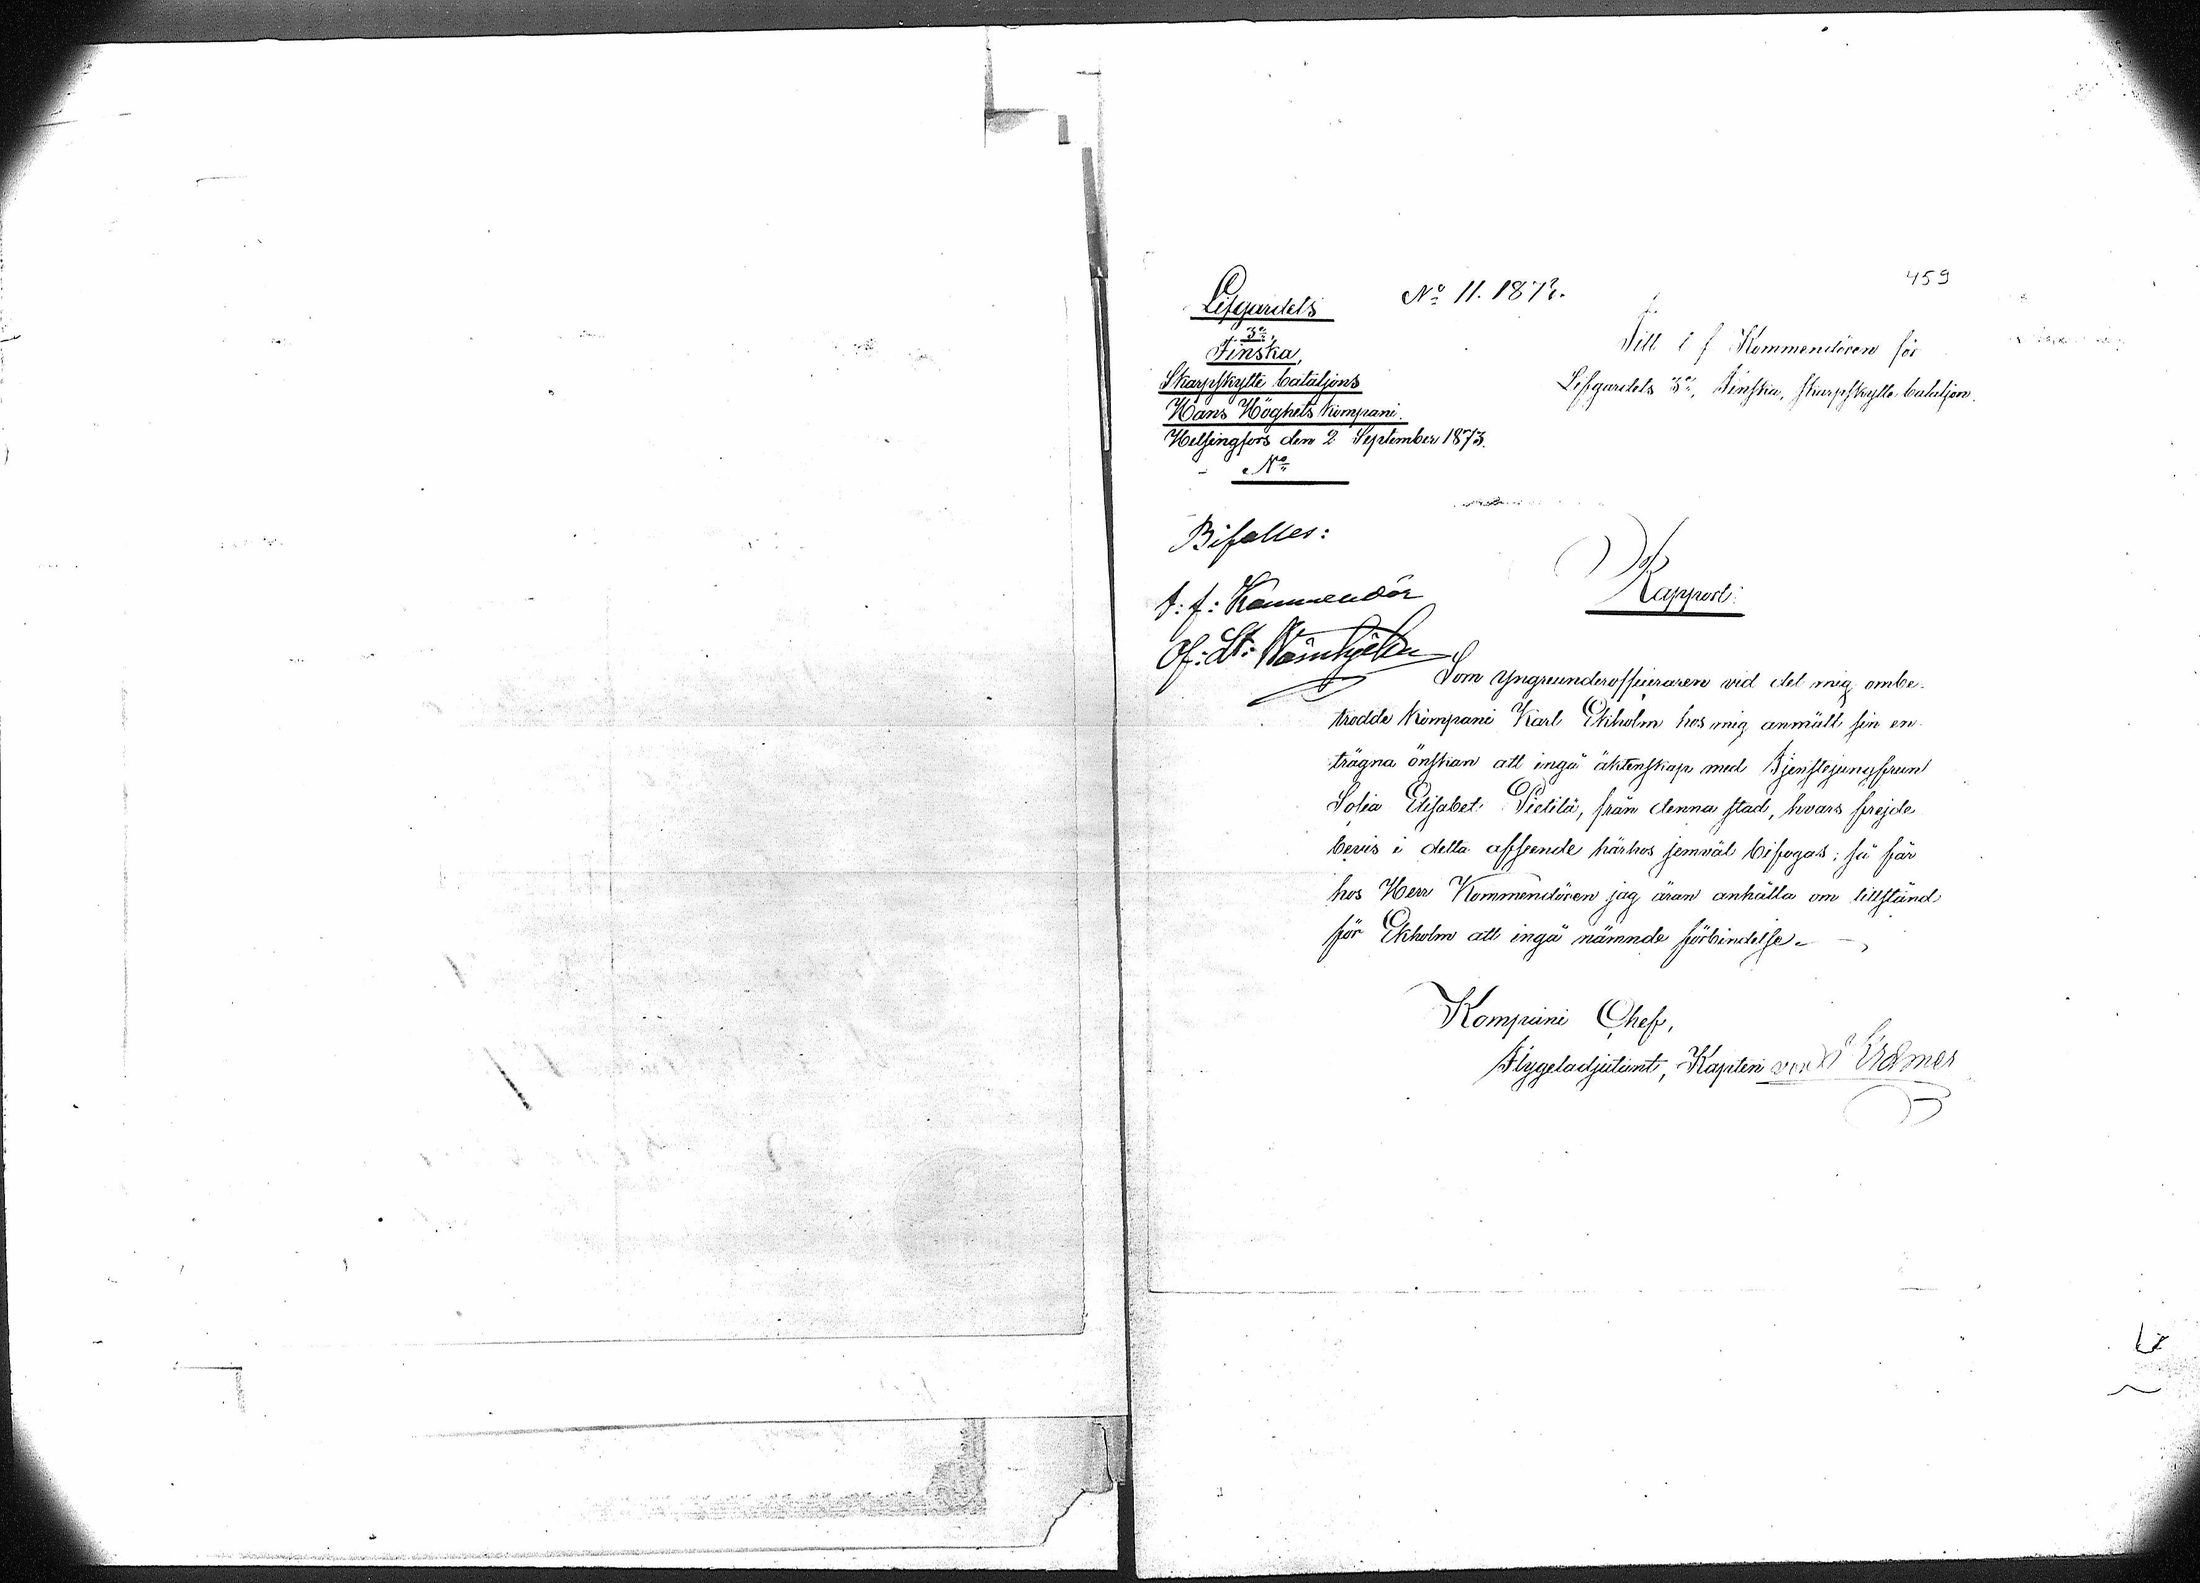 459
No 11. 1873.
Lifgardets
3e
Finska,
Skarpskytte bataljons
Hans Höghets kompani.
Helsingfors den 2 September 1873.
No
Till t f Kommendören för
Lifgardets 3e, Finska, skarpskytte bataljon.
Bifalles:
t: f: Kommendör
Öf: Lt:
Rapport.
Som yngreunderofficeraren vid det mig ombe-
trodde kompani Karl Ekholm hos mig anmält sin en-
trägna önskan att ingå äktenskap med Tjenstejungfrun
Sofia Elisabet Pietilä, från denna stad, hvars frejde
bevis i detta afseende härhos jemväl bifogas; så får
hos Herr Kommendören jag äran anhålla om tillstånd
för Ekholm att ingå nämnde förbindelse.
Kompani Chef,
Flygeladjutant, Kapten von